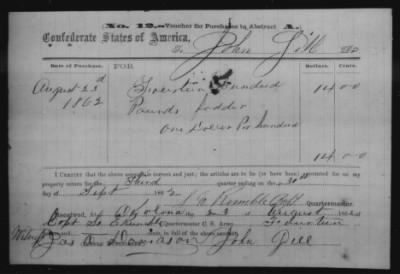 No. 12.—Voucher for Purchases to Abstract A.
Confederate States of America,
To John Gill Dr.
Date of Purchase. FOR Dollars. Cents.
August 23d Fourteen Hundred 14 00
1862 Pounds fodder
One Dollar Per hundred
14 00
I CERTIFY that the above account is correct and just; the articles are to be (or have been) accounted for on my
property return for the Third quarter ending on the 30th
day of Sept 1862
Quartermaster.
Received, at the 23 of August 1862
of Capt Quartermaster C. S. Army Fourteen
Dollars in full of the above account.
John Gill